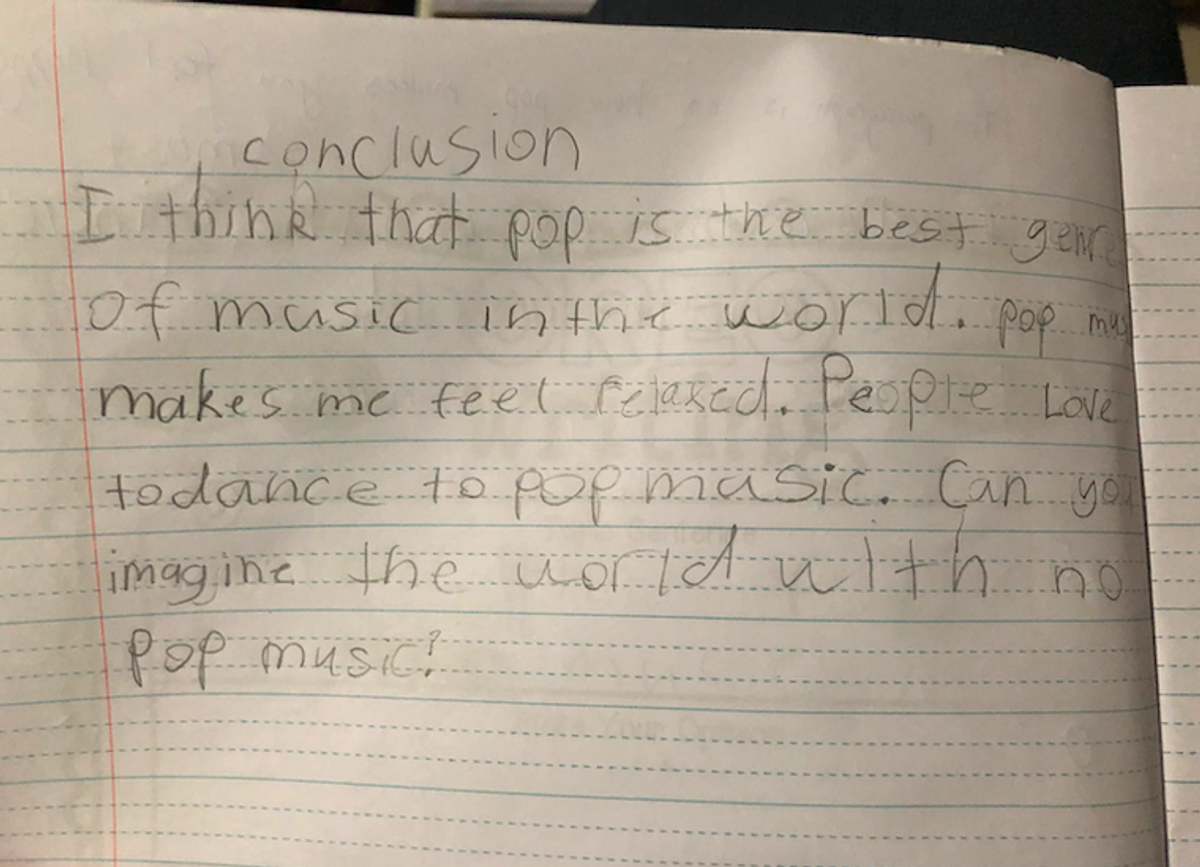 conclusion
I think that pop is the best genre
of music in the world. pop mus
makes me feel relaxed. People Love
to dance to pop music. Can you
imagine the world with no
pop music?